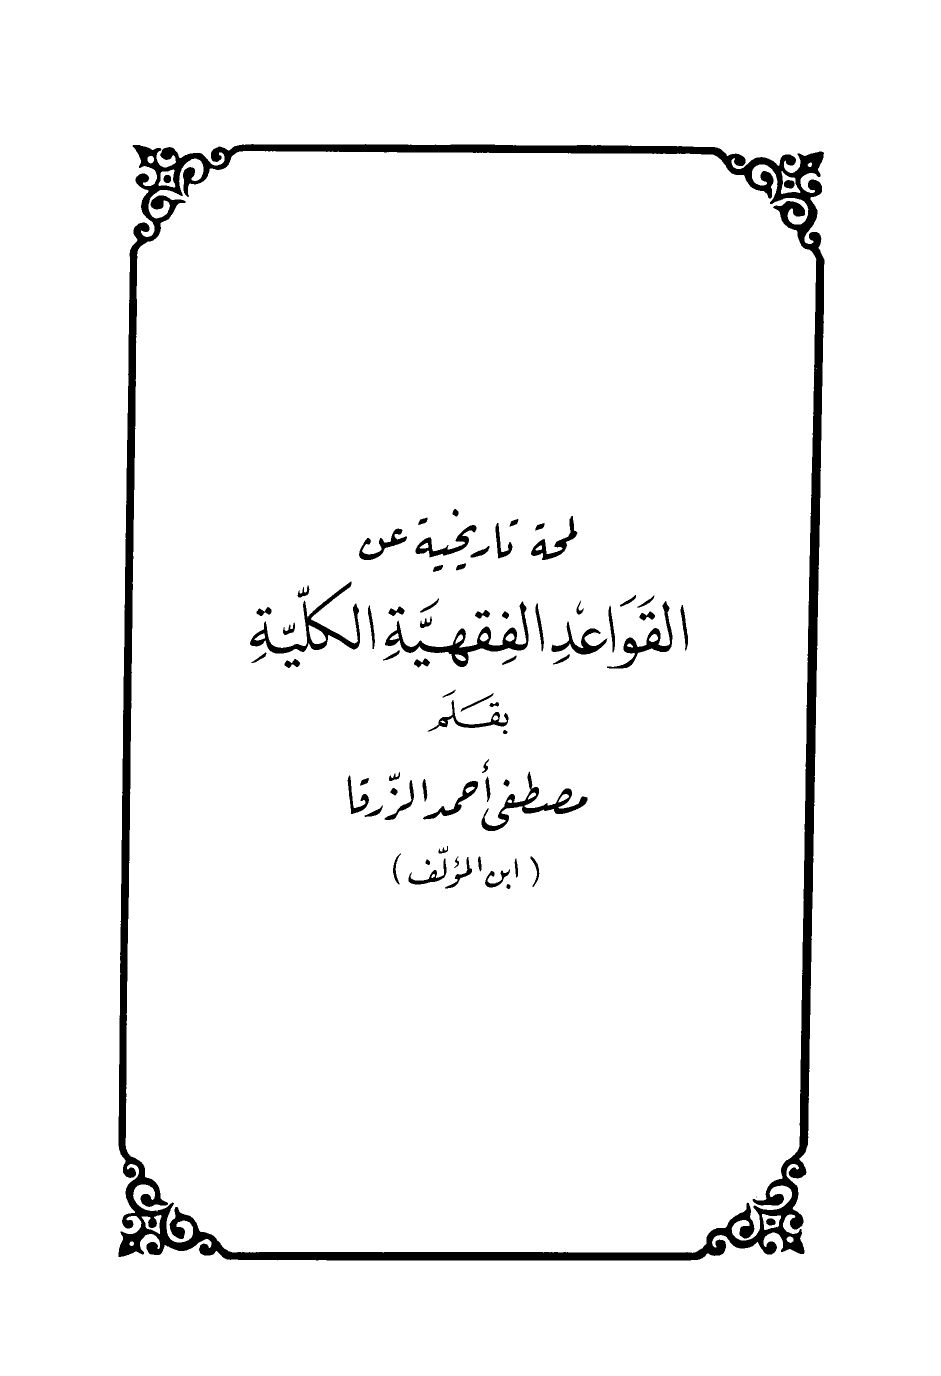 لمحة تاريخية عن
القَوَاعدِ الفِقهيَّةِ الكليّةِ
بقَلَم
مصطفى أحمد الزّرقا
( ابن المؤلّف )